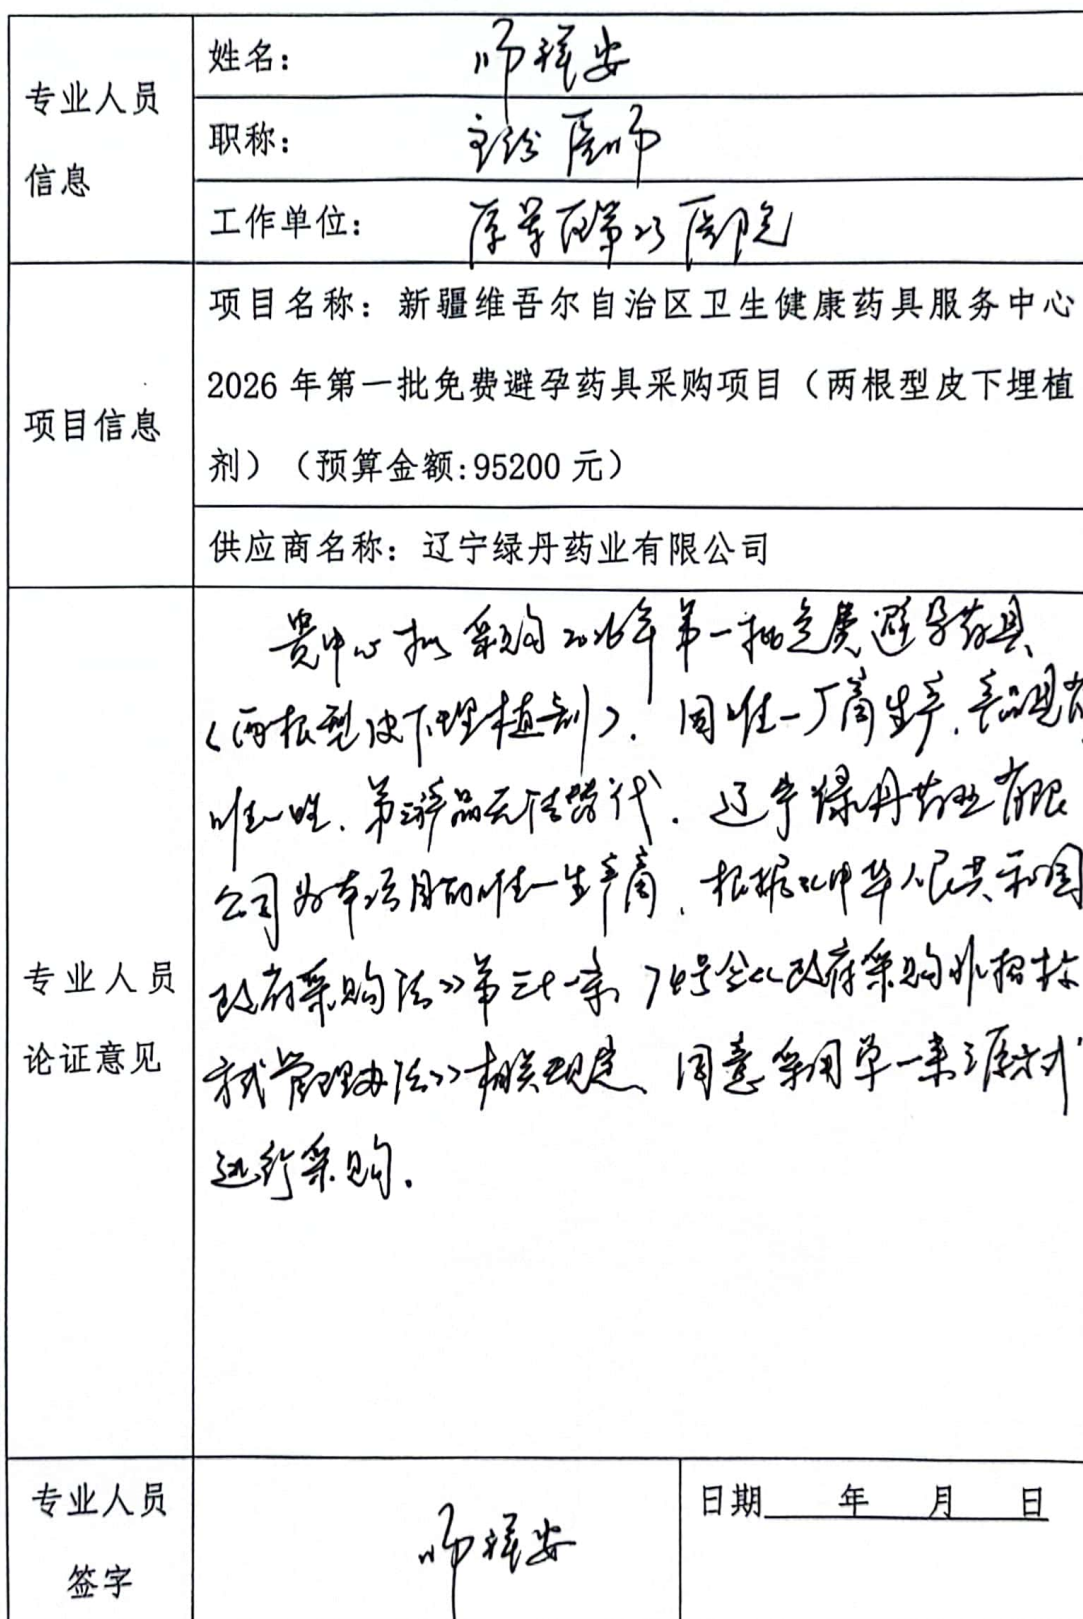 专业人员
信息
姓名： 师祥安
职称： 主治医师
工作单位： 原军区第23医院
项目信息
项目名称：新疆维吾尔自治区卫生健康药具服务中心
2026年第一批免费避孕药具采购项目（两根型皮下埋植
剂）（预算金额:95200元）
供应商名称：辽宁绿丹药业有限公司
专业人员
论证意见
贵中心拟采购2026年第一批免费避孕药具
（两根型皮下埋植剂）. 因唯一厂商生产.产品具有
唯一性、第 产品无法替代. 辽宁绿丹药业有限
公司为本项目的唯一生产商、根据《中华人民共和国
政府采购法》第三十一条、74号令《政府采购非招标
方式管理办法》相关规定、同意采用单一来源方式
进行采购.
专业人员
签字
师祥安
日期 年 月 日